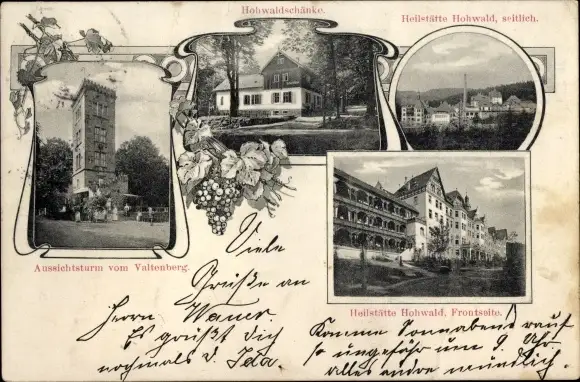 Hohwaldschänke.
Heilstätte Hohwald, seitlich.
Aussichtsturm vom Valtenberg.
Heilstätte Hohwald, Frontseite.
Viele
Grüße an
Herrn Wauer.
Es grüßt dich
nochmals d. Ida.
Komme Sonnabend rauf
so ungefähr um 9 Uhr
alles andre mündlich.